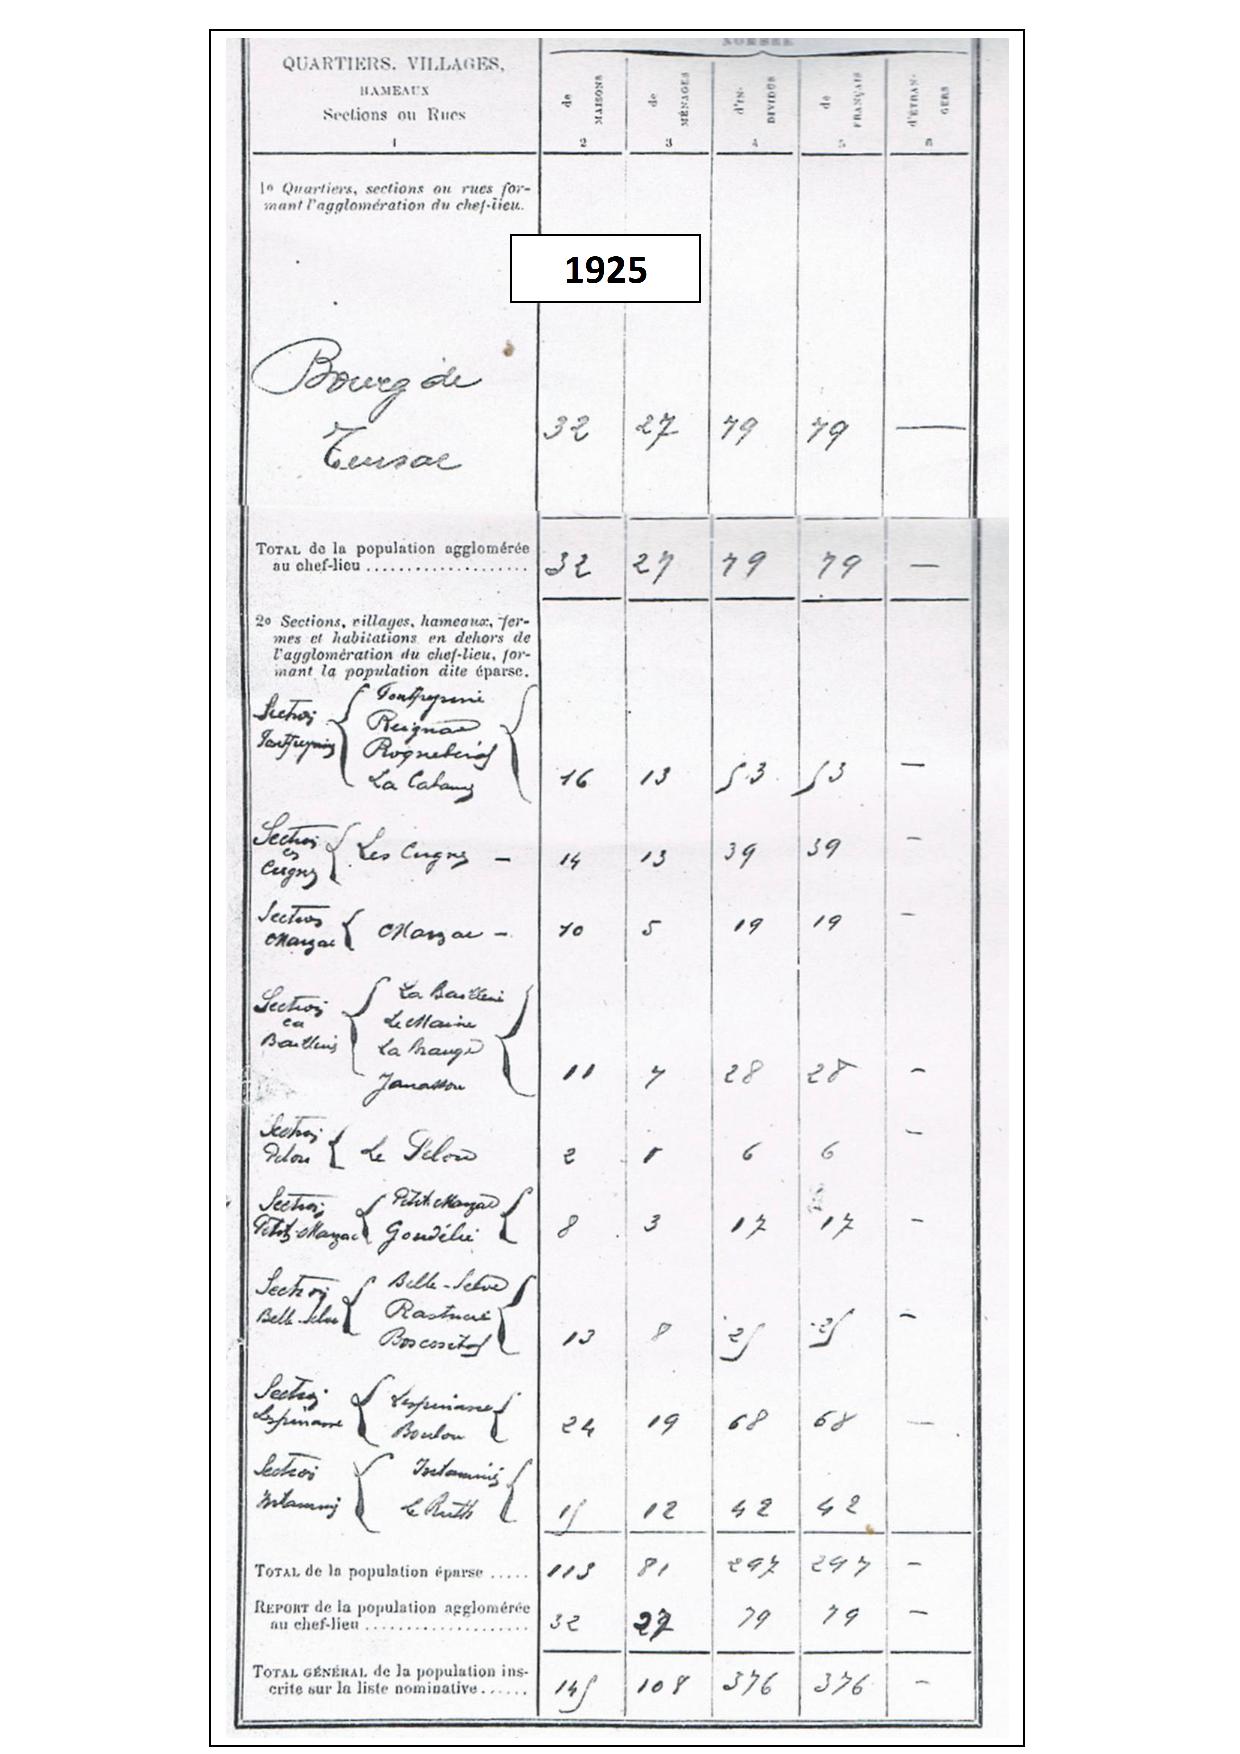 NOMBRE
QUARTIERS, VILLAGES,
HAMEAUX
Sections ou Rues
de MAISONS
de MÉNAGES
d'IN-DIVIDUS
de FRANÇAIS
d'ÉTRAN-GERS
1 2 3 4 5 6
1o Quartiers, sections ou rues for-
mant l'agglomération du chef-lieu.
1925
Bourg de
Tursac 32 27 79 79 —
TOTAL de la population agglomérée
au chef-lieu .................... 32 27 79 79 —
2o Sections, villages, hameaux, fer-
mes et habitations en dehors de
l'agglomération du chef-lieu, for-
mant la population dite éparse.
Section
Reignac
La Cabane 16 13 53 53 —
Section
Les Cugnes — 14 13 39 39 —
Section
Marzac Marzac — 10 5 19 19 —
Section
La
Le Maine
Janasson 11 7 28 28 —
Section
Pelou Le Pelou 2 1 6 6 —
Section Petit-Marzac
Petit-Marzac Goudélie 8 3 17 17 —
Section Belle-Selve
Belle-Selve
13 8 25 25 —
Section Lespinasse
Lespinasse Boulou 24 19 68 68 —
Section
Le Ruth 15 12 42 42
TOTAL de la population éparse ..... 113 81 297 297 —
REPORT de la population agglomérée
au chef-lieu .................... 32 27 79 79 —
TOTAL GÉNÉRAL de la population ins-
crite sur la liste nominative ...... 145 108 376 376 —